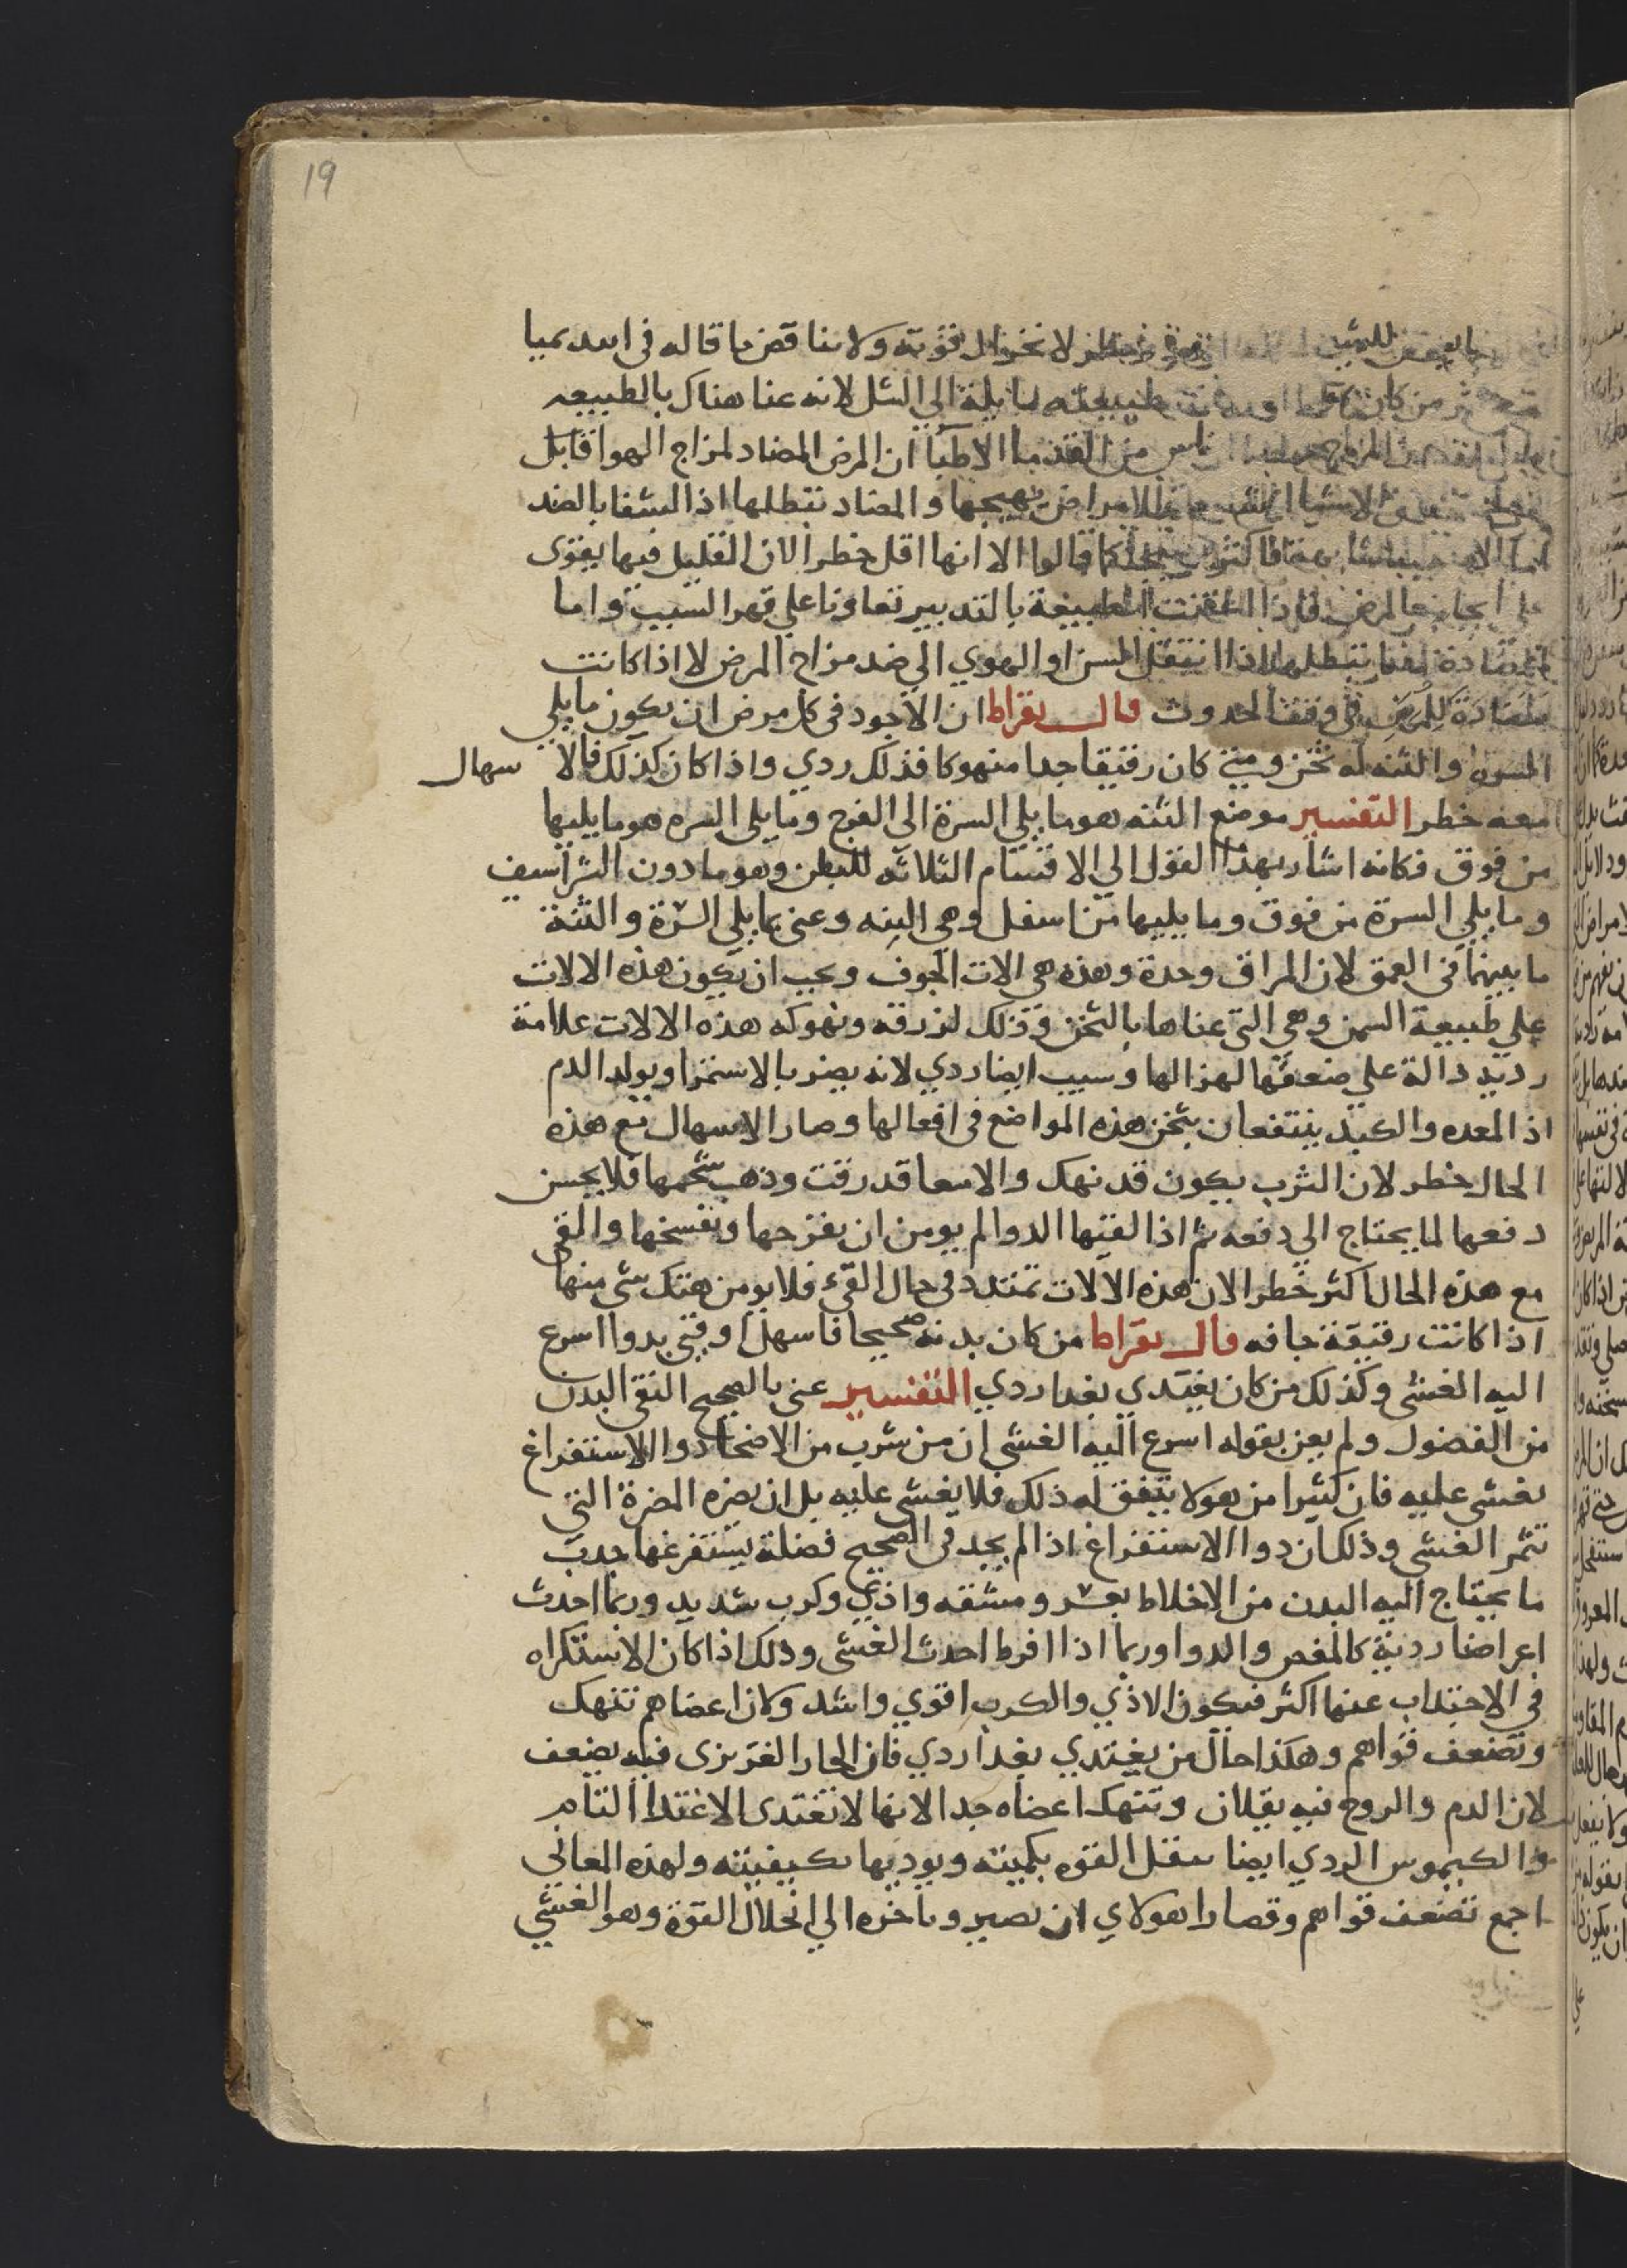 19
لا نخزال قوته ولا يناقض ما قاله في ابيديميا
من كان طبيعته مايلة الي السل لانه عنا هناك بالطبيعه
المزاج ناس من القدما الاطبا ان المرض المضاد لمزاج الهوا قابل
الاشيا للامراض تهيجها والمضاد تبطلها اذ الشفا بالضد
قالوا الا انها اقل خطرا لان القليل فيها يقوى
المرض الطبيعة بالتدبير تعاونا علي قهر السبب واما
تبطلها اذا انتقل السن او الهوي الي ضد مزاج المرض لا اذا كانت
مضادة للمرض في وقت الحدوث قال بقراط ان الاجود في كل مرض ان يكون ما يلي
السره والثنه له ثخن ومتي كان رقيقا جدا منهوكا فذلك ردي واذا كان كذلك فالا سهال
معه خطر التفسير موضع الثنه هو ما يلي السرة الي الفرج وما يلي السره هو ما يليها
من فوق فكانه اشار بهذا القول الي الاقسام الثلاثه للبطن وهو ما دون الشراسيف
وما يلي السرة من فوق وما يليها من اسفل وهي الثنه وعنى بما يلي السرة والثنة
ما بينهما في العمق لان المراق وحدة وهذه هي الات الجوف ويجب ان يكون هذه الالات
علي طبيعة السمن وهي التي عناها بالثخن وذلك لان رقه ونهوكه هذه الالات علامة
رديه دالة علي ضعفها لهزالها وسبب ايضا ردي لانه يضر بالاستمرا وبولد الدم
اذ المعده والكبد ينتفعان بثخن هذه المواضع في افعالها وصار الاسهال مع هذه
الحال خطر لان الثرب يكون قد نهك والامعا قد رقت وذهب شحمها فلا يحسن
دفعها لما يحتاج الي دفعه ثم اذا لقيها الدوا لم يومن ان يقرحها ويفسخها والقي
مع هذه الحال اكثر خطرا لان هذه الالات تمتدد في حال القيء فلا يومن هتك شي منها
اذا كانت رقيقة جافه قال بقراط من كان بدنه صحيحا فاسهل او قيي بدوا اسرع
اليه الغشي وكذلك من كان يغتدي بغدا ردي التفسير عنى بالصحيح النقي البدن
من الفضول ولم يعن بقوله اسرع اليه الغشي ان من شرب من الاصحا دوا الاستفراغ
يغشى عليه فان كثيرا من هولا يتفق له ذلك فلا يغشى عليه بل ان يضره المضرة التي
تثمر الغشي وذلك ان دوا الاستفراغ اذا لم يجد في الصحيح فضلة يستفرغها جدب
ما يحتاج اليه البدن من الاخلاط بعسر ومشقه واذي وكرب شديد وربما احدث
اعراضا ردية كالمغص والدوا وربما اذا افرط احدث الغشي وذلك اذا كان الاستكراه
في الاجتداب عنها اكثر فيكون الاذي والكرب اقوي واشد وكان اعضاهم تنهك
وتضعف قواهم وهكذا حال من يغتدي بغدا ردي فان الحار الغريزى فيه يضعف
لان الدم والروح فيه يقلان وتنهك اعضاه جدا لانها لا تغتدى الاغتدا التام
والكيموس الردي ايضا يثقل القوه بكميته ويوديها بكيفيته ولهذه المعاني
اجمع تضعف قواهم وقصارا هولاي ان يصير وباخره الي انحلال القوة وهو الغشي